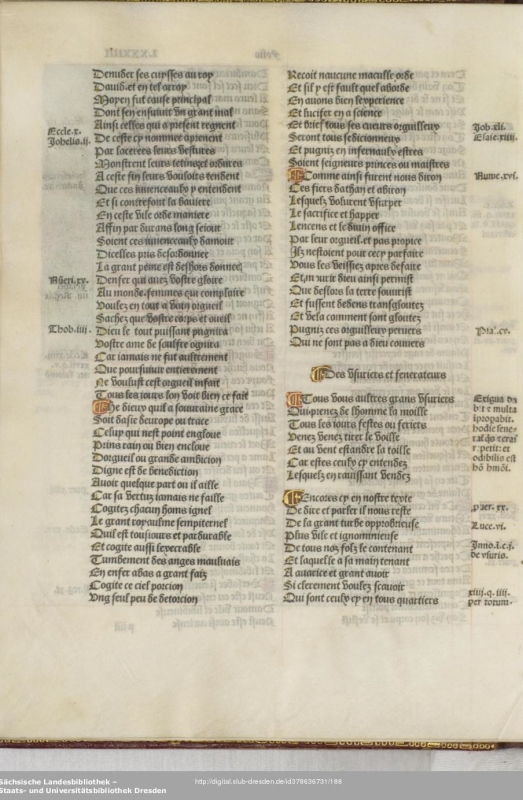 Denuder ses cuysses au roy
Dauid. et en tel arroy
Moyen fut cause principal
Dont sen ensuiuit vn grant mal
Ainsi celles qui a present regnent
De ceste cy nommee aprenent
Par lacerees leurs vestures
Monstrent leurs tetinez et ordures
A ceste fin leurs vouloirs tendent
Que ces iuuenceaulx y entendent
Et si contrefont la
En ceste vile orde maniere
Affin par durans long seiour
Soient ces iuuenceaulx damour
Dicelles puis
La grant peine est dehors donnee
Denfer qui auez vostre gloire
Au monde. femmes qui complaire
Voulez en tout a vain orgueil
Sachez que vostre corps et oueil
Dieu le tout puissant pugnira
Vostre ame de soulfre ognira
Car iamais ne fut aultrement
Que poursuiuir entierement
Ne voulust cest orgueil infait
Tous les iours lon voit bien ce fait
He dieux quil a souueraine grace
Soit dasie deurope ou trace
Celuy qui nest point engloue
Prins vain ou bien encloue
Dorgueil ou grande ambicion
Digne est de benediction
Auoit quelque part ou il aille
Car sa vertuz iamais ne faille
Cogitez chacun homs ignel
Le grant royaulme sempiternel
Quil est tousiours et pardurable
Et cogite aussi lexecrable
Tumbement des anges mauluais
En enfer abas a grant faiz
Cogite ce ciel porcion
Vng seul peu de detracion
Eccle.x.
Johelis.ij.
Nueri.xv.
Thob.iiij.
Recoit naucune maculle orde
Et sil y est fault quel aborde
En auons bien lexperience
Et lucifer en a science
Et brief tous ses cueurs orguilleux
Seront tous sedicionneux
Et pugniz en infernaulx estres
Soient seigneurs princes ou maistres
Comme ainsi furent nous dirons
Ces fiers dathan et abiron
Lesquelz volurent vsurper
Le sacrifice et happer
Lencens et le diuin office
Par leur orgueil. et pas propice
Ilz nestoient pour cecy parfaire
Vous les veissiez apres deffaire
Et mourir dieu ainsi permist
Que dessoubs la terre souurist
Et fussent dedens transgloutez
Et vela comment sont gloutez
Pugniz ces orguilleux peruers
Qui ne sont pas a dieu conuers
Des vsuriers et fenerateurs
Tous vous aultres grans vsuriers
Qui prenez de lhomme la moille
Tous les iours festes ou feriers
Venez venez tirer le voille
Et au vent estandre la toille
Car estes ceulx cy entendez
Lesquelz en rauissant vendez
Encores cy en nostre texte
De dire et parler il nous reste
De la grant turbe opprobrieuse
Plus vile et ignominieuse
De tous noz folz le contenant
Et laquelle a sa main tenant
A auarice et grant auoir
Si clerement voulez scauoir
Qui sont ceulx cy en tous quartiers
Job.xli.
Esaie.xiiij.
Nume.xvi.
Psa'.cv.
odibilis est
Luce.vi.
Inno.i.c.j.
de vsurio.
xiiij.q.iiij.
per totum.
Sächsische Landesbibliothek –
Staats- und Universitätsbibliothek Dresden
http://digital.slub-dresden.de/id378636731/188